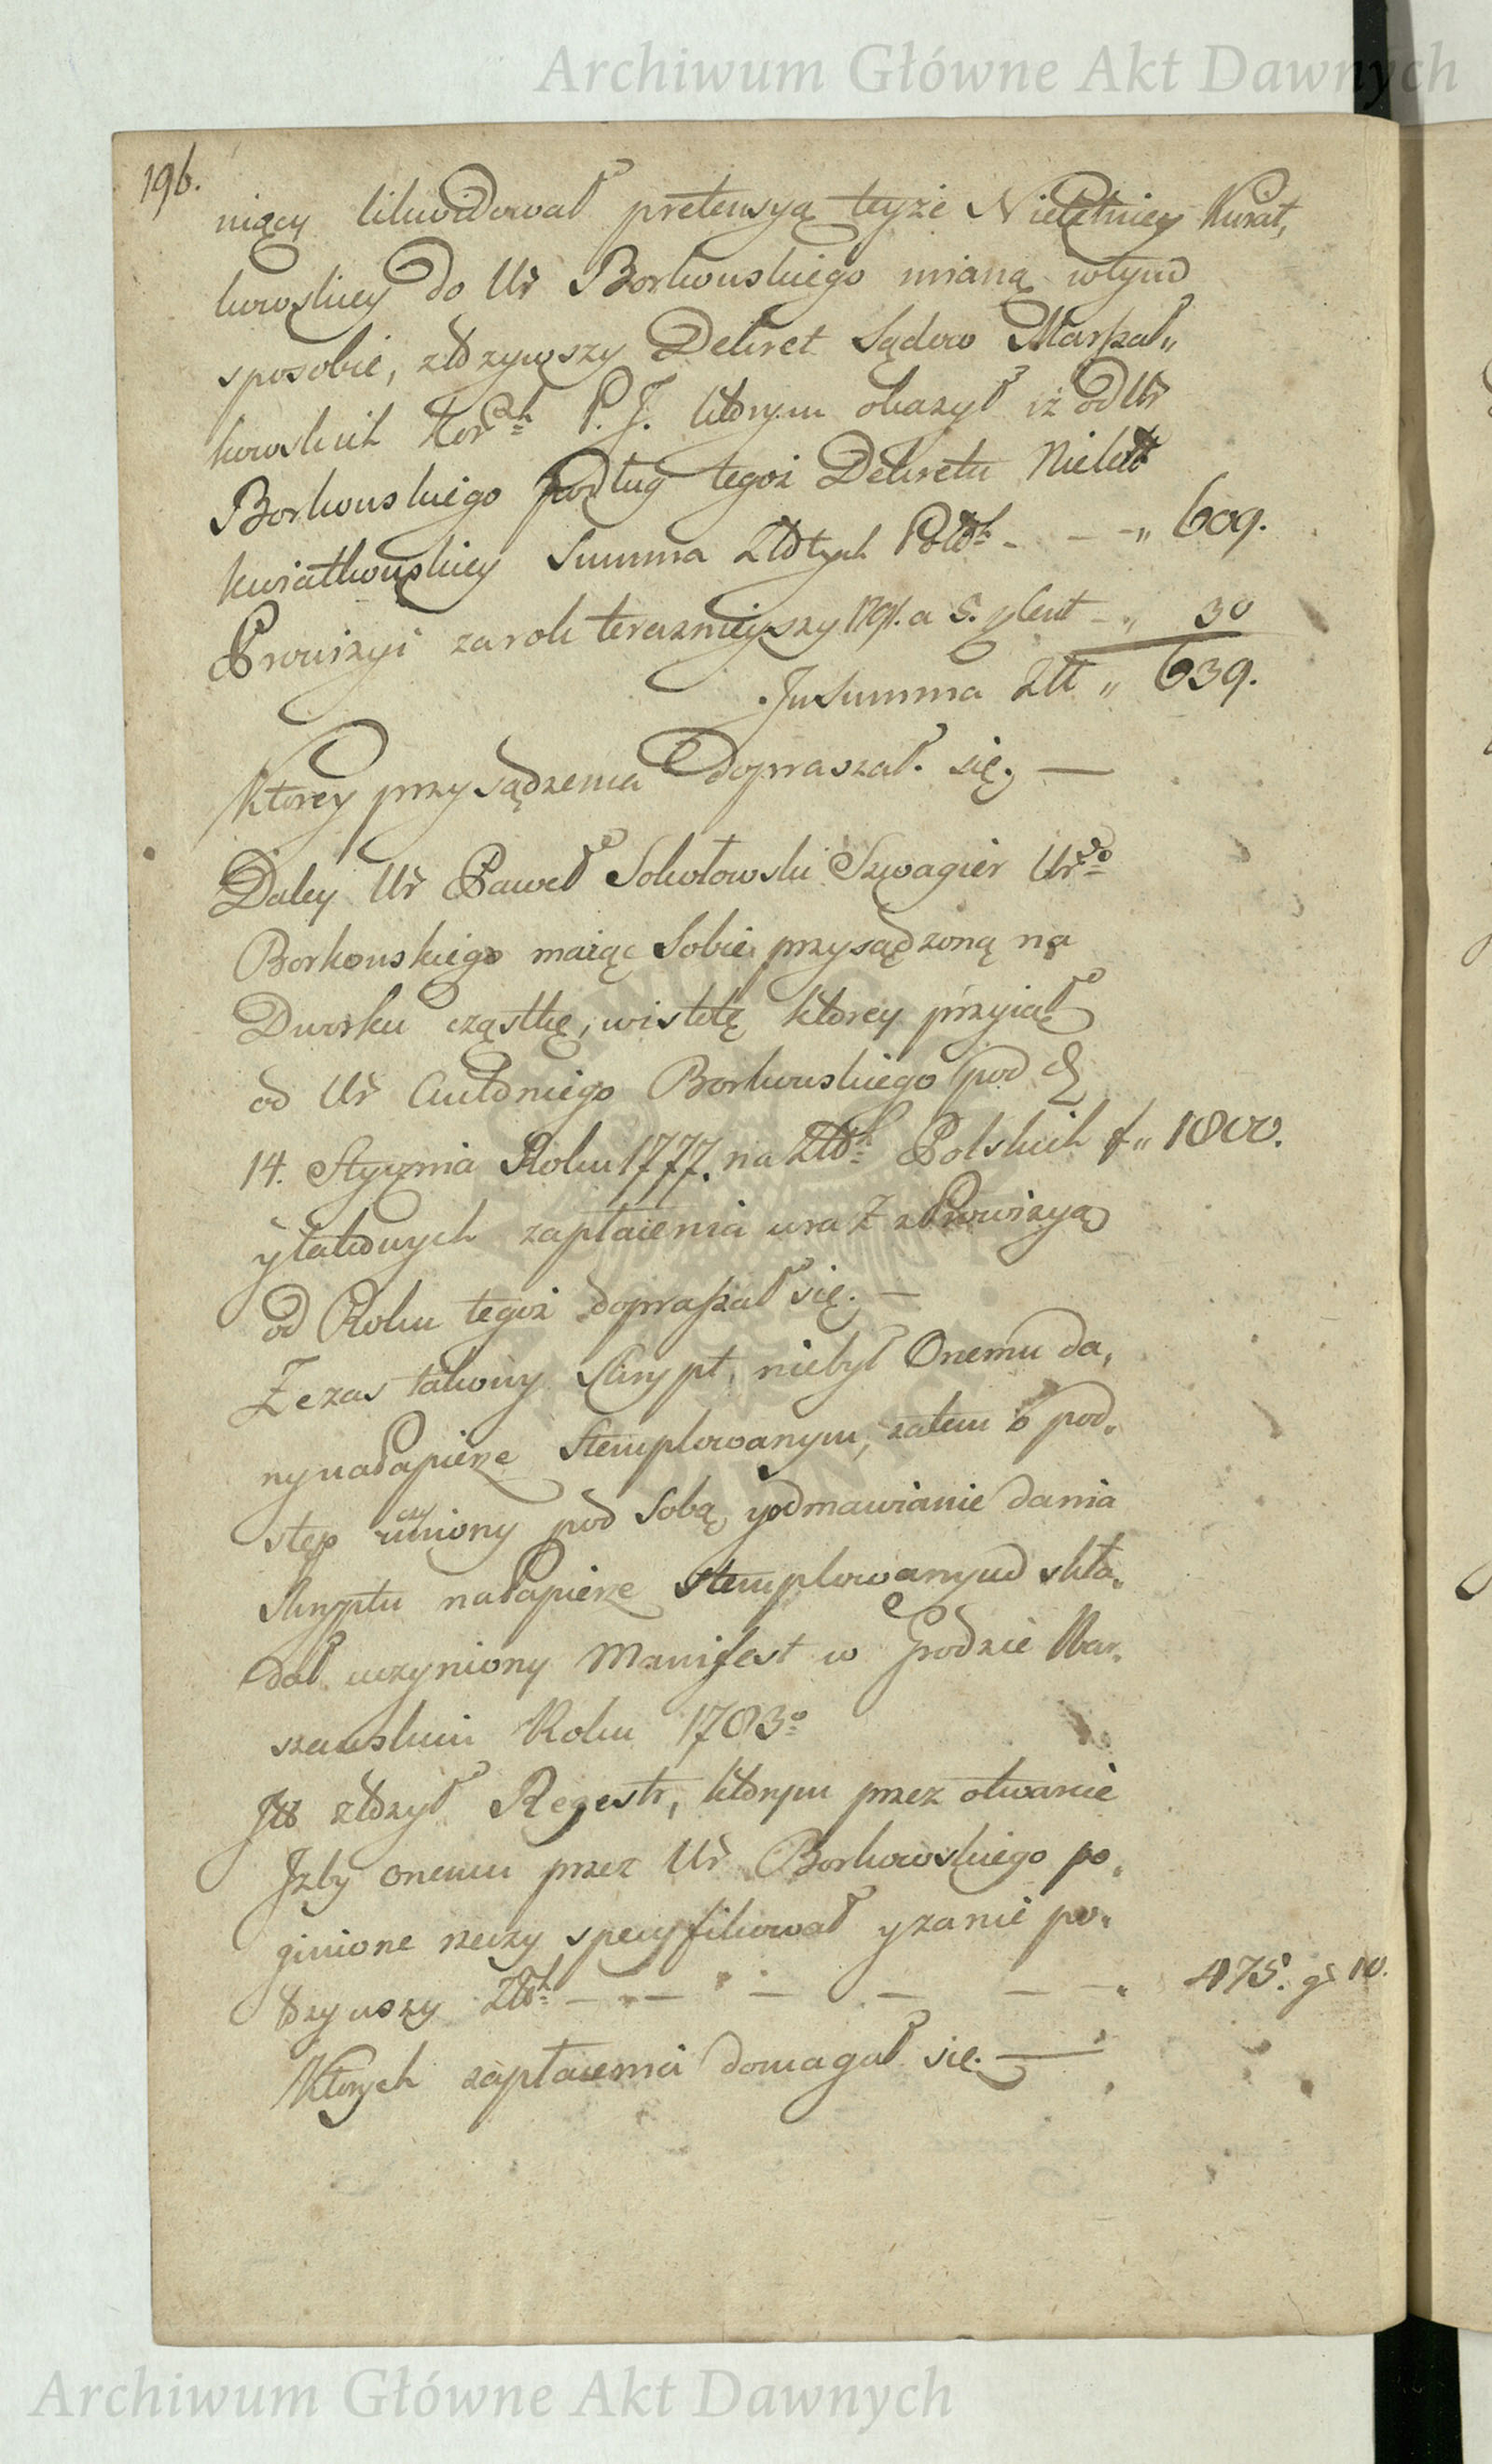 Archiwum Główne Akt Dawnych
196.
niący likwidował pretensyą teyże Nieletniey Kwiat,
kowskiey do Ur Borkowskiego mianą wtym
sposobie, złożywszy Dekret Sądow Marszał„
kowskich Korch P. J. którym okazył iż od Ur
Borkowskiego podług tegoż Dekretu Nielet
kwiatkowskiey Summa Złotych Polch - - -„ 609.
Prowizyi zarok teraznieyszy 1791. a 5. pCent -„ 30
Insumma Złł „ 639.
Ktorey przysądzenia dopraszał się. —
Daley Ur Paweł Sokołowski Szwagier Urgo
Borkowskiego maiąc Sobie przysądzoną na
Dworku cząstkę, wistotę którey przyiął
od Ur Antoniego Borkowskiego pod d
14. Stycznia Roku 1777. na Złch Polskich f„ 1800.
y takowych zapłacenia wraz z Prowizyą
od Roku tegoż dopraszał się. —
Ze zas takowy Skrypt, niebył Onemu da„
ny na Papierze Stemplowanym, zatem o pod„
stęp uczyniony pod Sobą, y odmawianie dania
Skryptu na Papierze Stemplowanym skła„
dał uczyniony Manifest w Grodzie War„
szawskim Roku 1783o
złożył Regestr, którym przez otwarcie
Izby onemu przez Ur Borkowskiego po„
ginione rzeczy specyfikował y zanie po„
Złch - - - - - - „ 475. gr 10.
Ktorych zapłacenia domagał się. —
Archiwum Główne Akt Dawnych